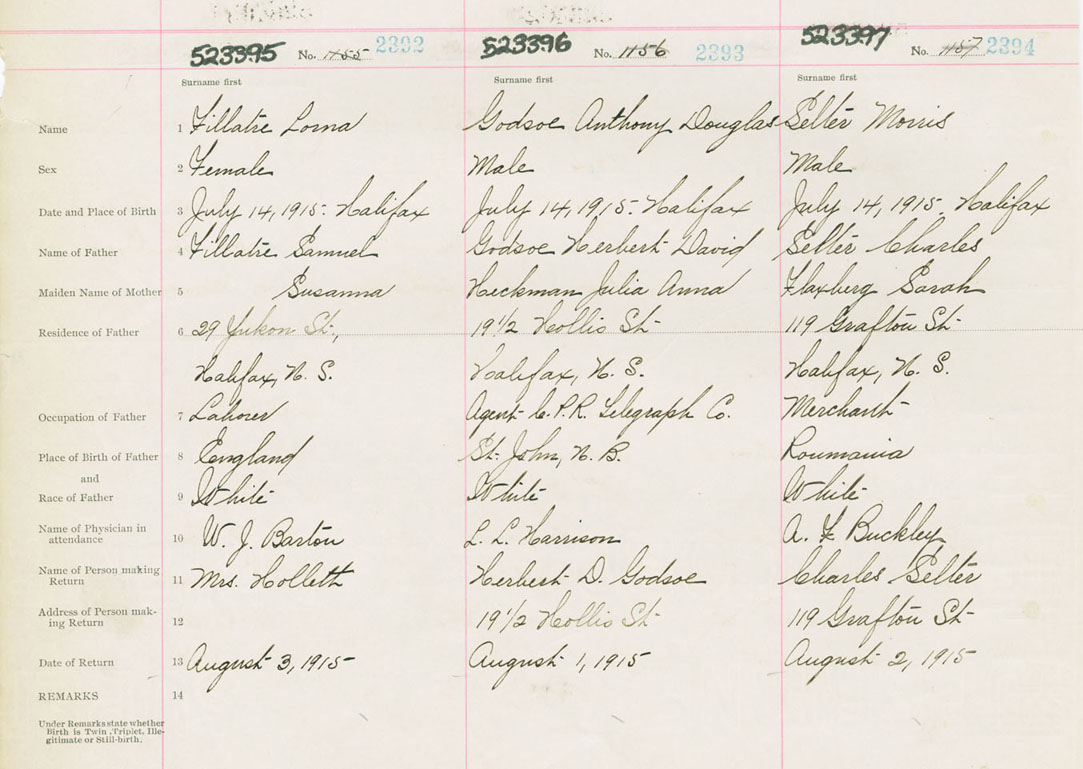 523395 No. 1155 2392 523396 No. 1156 2393 523397 No. 1157 2394
Surname first Surname first Surname first
Name 1 Fillatre Lorna Godsoe Anthony Douglas Selter Morris
Sex 2 Female Male Male
Date and Place of Birth 3 July 14, 1915. Halifax July 14, 1915. Halifax July 14, 1915. Halifax
Name of Father 4 Fillatre Samuel Godsoe Herbert David Selter Charles
Maiden Name of Mother 5 Susanna Heckman Julia Anna Flaxberg Sarah
Residence of Father 6 29 Yukon St., 19 1/2 Hollis St 119 Grafton St
Halifax, N. S. Halifax, N. S. Halifax, N. S.
Occupation of Father 7 Laborer Agent C.P.R. Telegraph Co. Merchant
Place of Birth of Father 8 England St. John, N. B. Roumania
and
Race of Father 9 White White White
Name of Physician in
attendance 10 W. J. Barton L. L. Harrison A. F. Buckley
Name of Person making
Return 11 Mrs. Holleth Herbert D. Godsoe Charles Selter
Address of Person mak-
ing Return 12 19 1/2 Hollis St 119 Grafton St
Date of Return 13 August 3, 1915 August 1, 1915 August 2, 1915
REMARKS 14
Under Remarks state whether
Birth is Twin, Triplet, Ille-
gitimate or Still-birth.